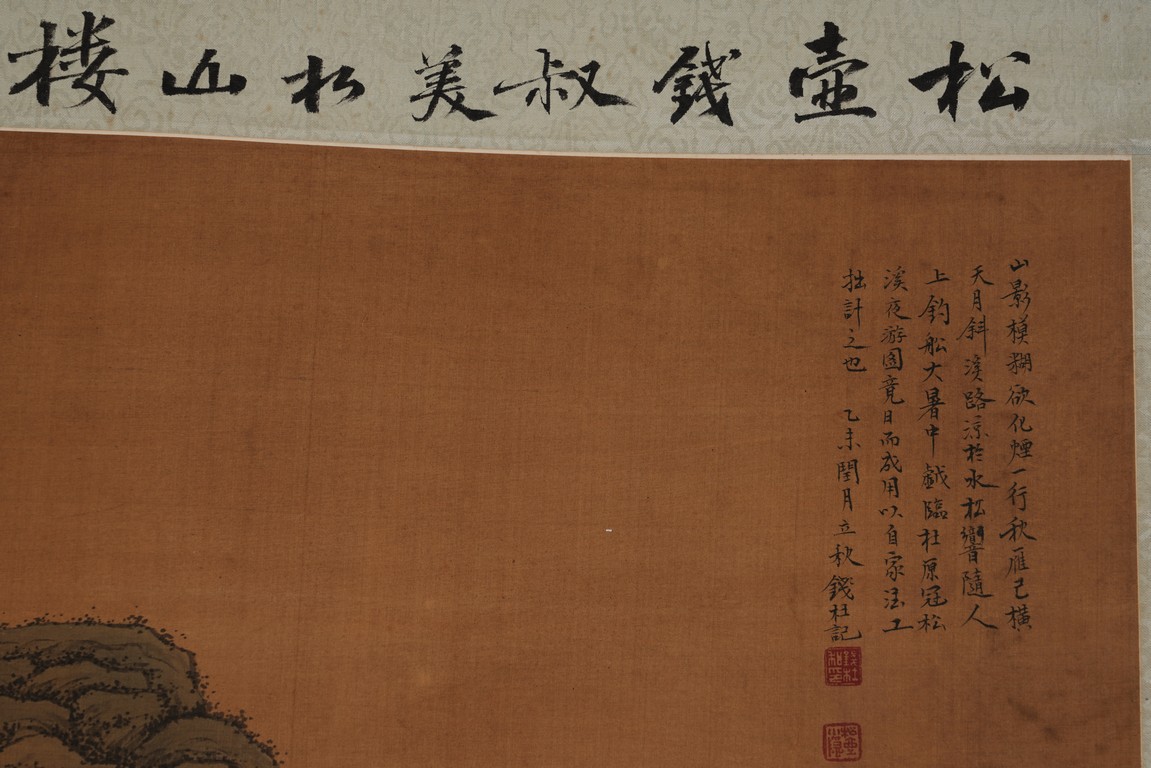 松壺錢叔美松山樓
山影模糊欲化煙一行秋雁已橫
天月斜溪路涼於水松響隨人
上釣船大暑中戲臨杜原冠松
溪夜游圖竟日而成用以自家法工
拙計之也　乙未閏月立秋錢杜記